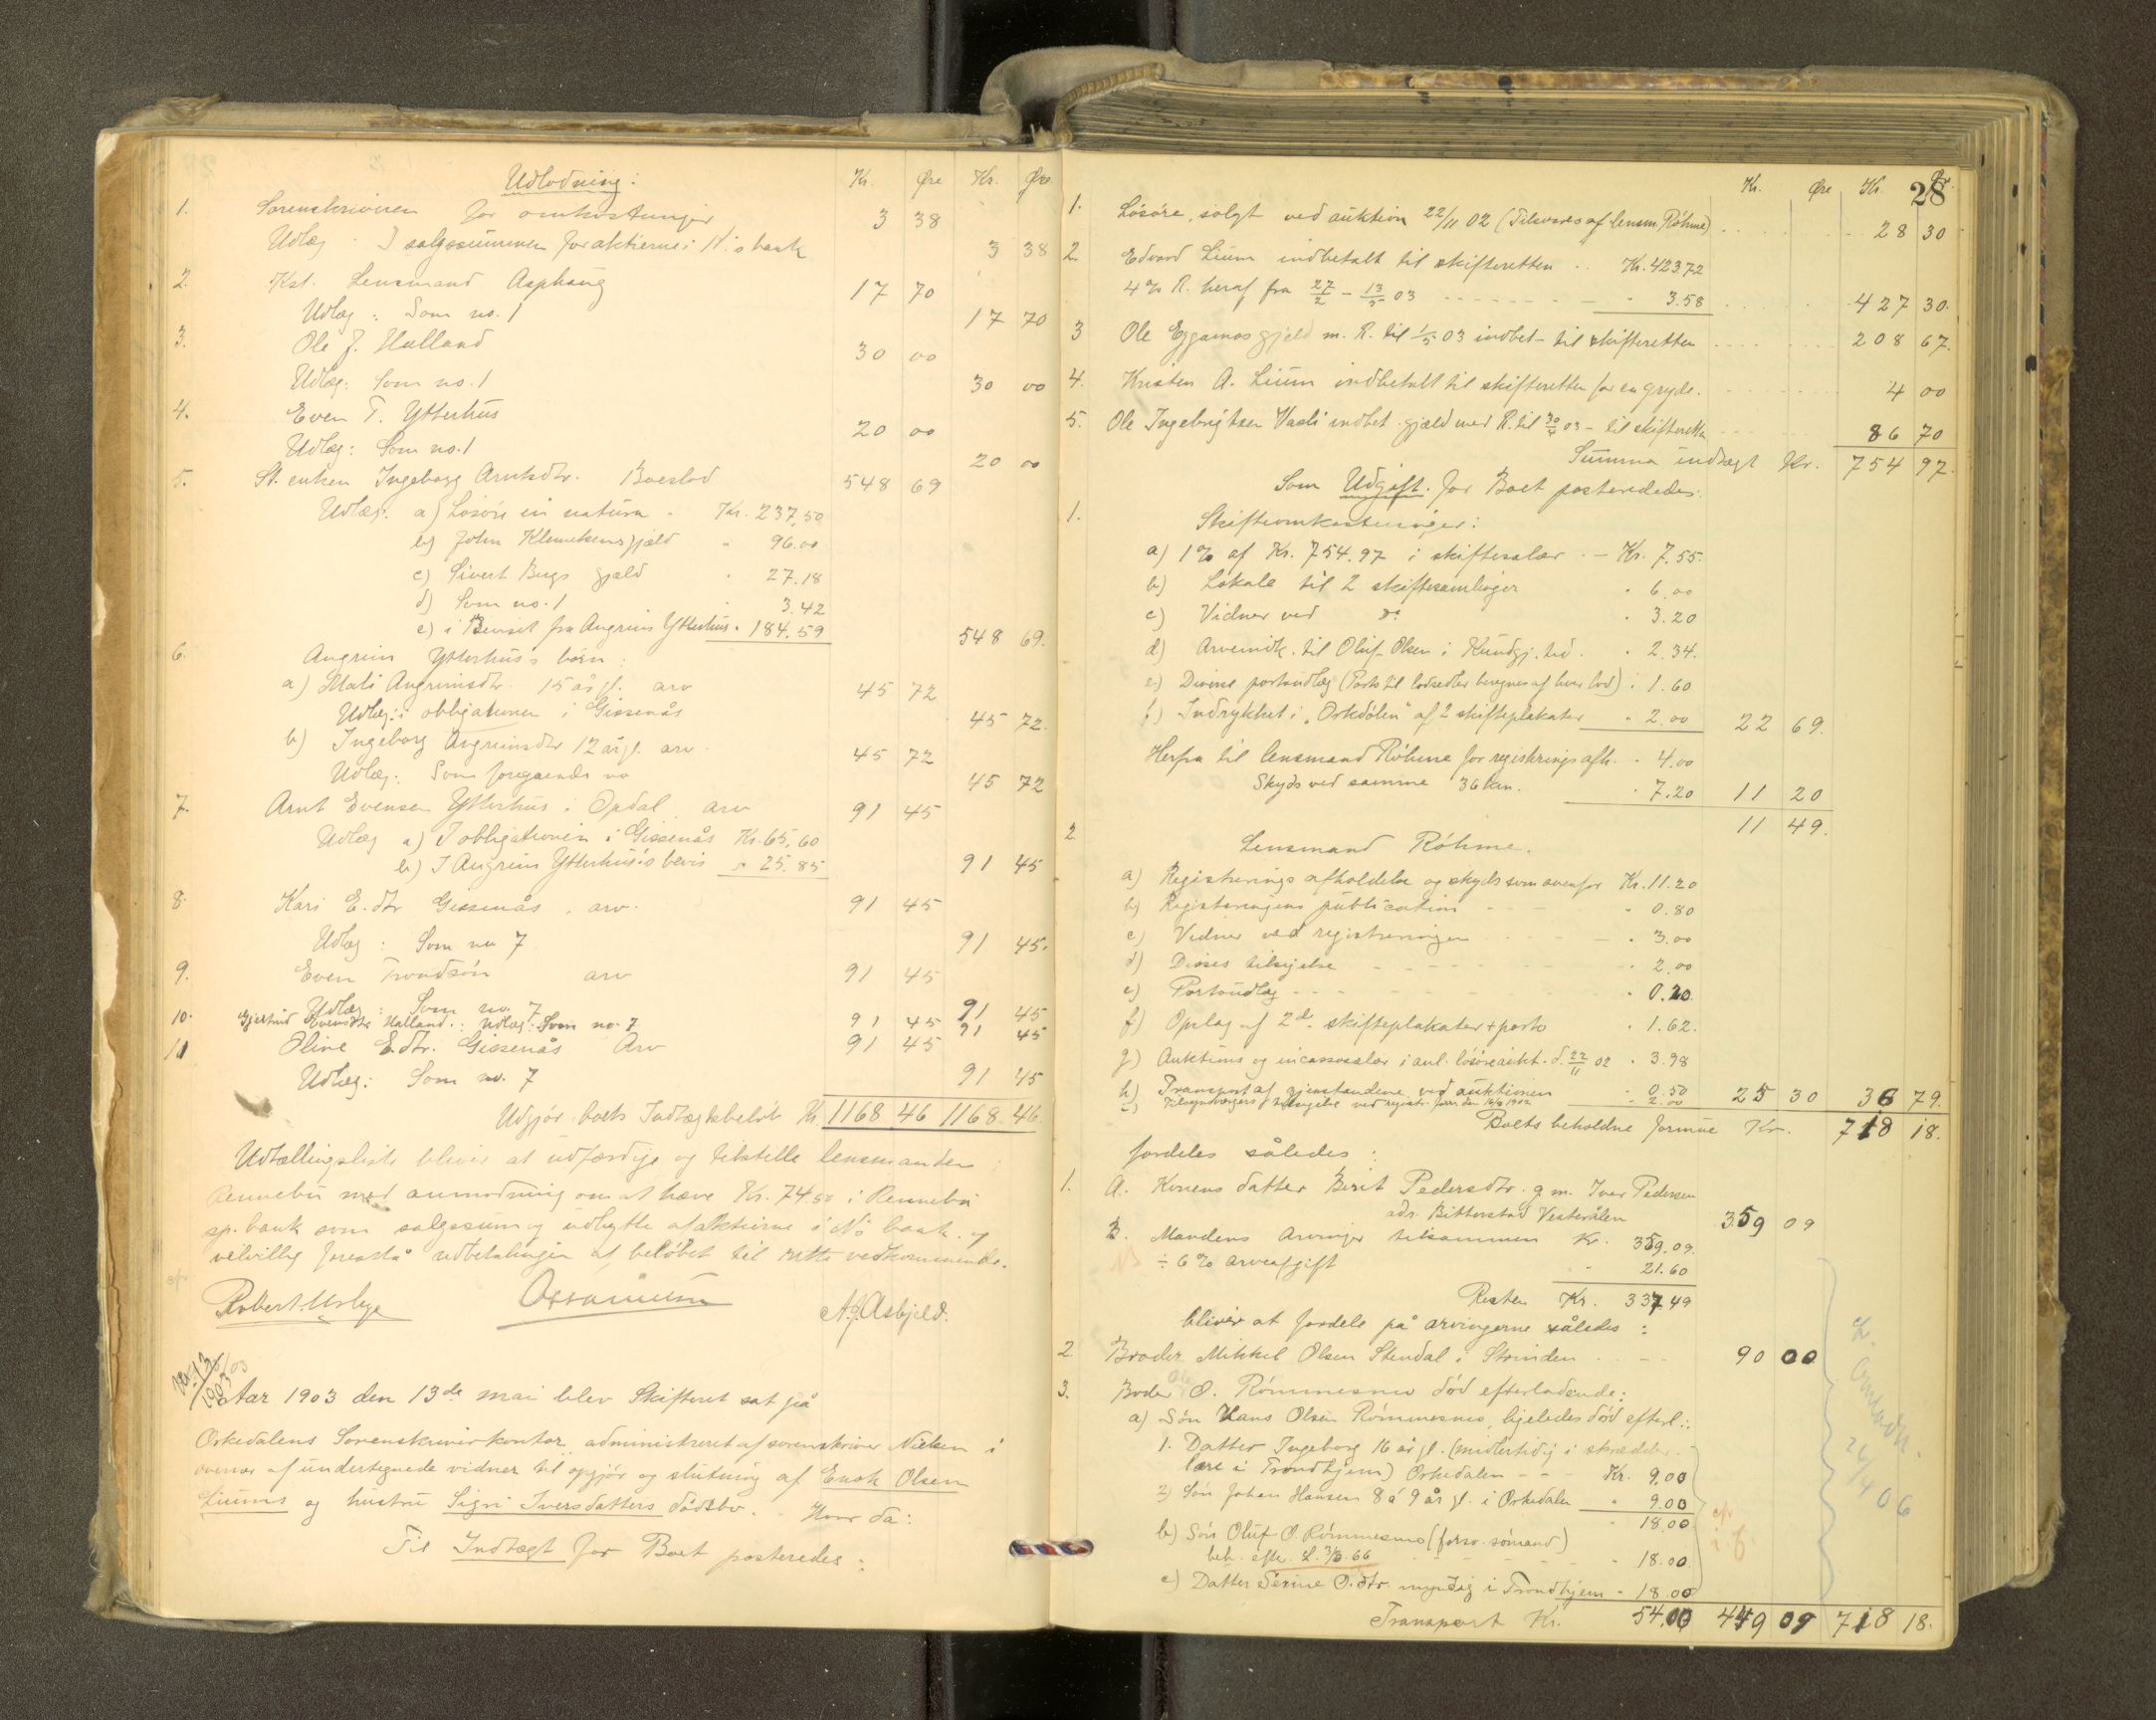 Udlodning: Kr. Øre Kr. Øre
1. Sorenskriveren for omkostninger 3 38
Udlæg. I salgssummen for aktierne i N.s bank 3 38
2. Kst. Lensmand Asphaug 17 70
Udlæg: Som no. 1 17 70
3. Ole J. Halland 30 00
Udlæg: Som no. 1 30 00
4. Even T. Ytterhus 20 00
Udlæg: Som no. 1 20 00
5. St. enken Ingeborg Arntsdtr. Boeslod 548 69
Udlæg: a) Løsøre in natura - Kr. 237,50
b) John Klemetsens gjæld " 96.00
c) Sivert Bugs gjæld " 27.18
d) Som no. 1 3.42
e) i Beviset fra Angrim Ytterhus " 184.59 548 69.
6. Angrim Ytterhus's børn:
a) Mali Angrimsdtr. 15 år gl. arv 45 72
Udlæg: i obligationen i Gissenås 45 72.
b) Ingeborg Angrimsdtr 12 år gl. arv. 45 72
Udlæg: Som foregaaende no 45 72
7. Arnt Evensen Ytterhus i Opdal arv 91 45
Udlæg a) I obligationen i Gissenås Kr. 65,60
b) I Angrim Ytterhus's bevis " 25.85 91 45
8. Kari E.dtr Gissenås, arv. 91 45
Udlæg: Som no 7 91 45.
9. Even Trondsøn arv 91 45
Udlæg: Som no. 7 91 45
10. Gjertrud Evensdtr Halland.: Udlæg: Som no. 7 91 45 91 45
11 Oline E.dtr. Gissenås Arv 91 45
Udlæg: Som no. 7 91 45
Udgjør boets Indtægtsbeløb Kr. 1168 46 1168 46.
Udtællingsliste bliver at udfærdige og tilstille lensmanden i
Rennebu med anmodning om at hæve Kr. 74.50 i Rennebu
sp. bank som salgssum og udbytte af aktierne i N's bank og
velvillig forestå udbetalingen af beløbet til rette vedkommende.
Robert Uslye A.J. Asbjeld.
Aar 1903 den 13de mai blev Skifteret sat på
Orkedalens Sorenskriverkontor, administreret af sorenskriver Nielsen i
overvær af undertegnede vidner til opgjør og slutning af Enok Olsen
Liums og hustru Sigri Iversdatters dødsbo. Hvor da:
Til Indtægt for Boet posteredes:
28
Kr. Øre Kr. Ør.
1. Løsøre, solgt ved auktion 22/11 02 (Tilsvares af lensm. Röhme) 28 30
2 Edvard Lium indbetalt til skifteretten .. Kr. 423.72
4 % R. heraf fra 27/2 - 13/5 03 " 3.58 427 30.
3 Ole Eggamos gjeld m. R. til 1/5 03 indbet - til skifteretten 208 67.
4. Kristen A. Lium indbetalt til skifteretten for en gryde. 4 00
5. Ole Ingebrigtsen Vasli indbet. gjæld med R. til 30/4 03 - til skifteretten 86 70
Summa indtægt Kr. 754 97.
Som Udgift for Boet posteredes:
1. Skifteomkostninger:
a) 1 % af Kr. 754.97 i skiftesalær - Kr. 7.55.
b) Lokale til 2 skiftesamlinger " 6.00
c) Vidner ved do " 3.20
d) Arveindk. til Oluf Olsen i Kundgj. tid. " 2.34.
e) Diverse portoudlæg (Porto til lodsedler beregnes af hver lod) " 1.60
f) Indrykket i "Orkdølen" af 2 skifteplakater " 2.00 22 69.
Herfra til lensmand Röhme for registrings afh. " 4.00
Skyds ved samme 36 km. " 7.20 11 20
11 49.
2 Lensmand Röhme.
a) Registrerings afholdelse og skyds som ovenfor Kr. 11.20
b) Registreringens publication " 0.80
c) Vidner ved registreringen " 3.00
d) Disses tilsigelse " 2.00
e) Portoudlæg " 0.20
f) Opslag af 2de skifteplakater + porto " 1.62.
g) Auktions og incassosalær i anl. løsøreaukt. d. 22/11 02 " 3.98
h) Transport af gjenstandene ved auktionen " 0.50 25 30 36 79.
Boets beholdne formue Kr. 718 18.
fordeles således:
1. A. Konens datter Berit Pedersdtr. g.m. Iver Pedersen
adr. Bitterstad Vesterålen 359 09
B. Mandens Arvinger tilsammen Kr. 359.09.
÷ 6 % arveafgift " 21.60
Resten Kr. 337 49
bliver at fordele på arvingerne således:
2. Broder Mikkel Olsen Stendal i Strinden 90 00
3. Broder O. Römmesmo død efterladende:
a) Søn Hans Olsen Römmesmo, ligeledes død efterl.:
1. Datter Ingeborg 16 år gl. (midlertidig i skrædder
lære i Trondhjem) Orkedalen - - Kr. 9,00
2) Søn Johan Hansen 8 á 9 år gl. i Orkedalen " 9.00
" 18.00
b) Søn Oluf O. Römmesmo (forsv. sømand)
beh. efter L. 3/3.66 " 18.00.
c) Datter Serine O.dtr. myndig i Trondhjem " 18.00
Transport Kr. 54.00 449 09 718 18.
26/4 06